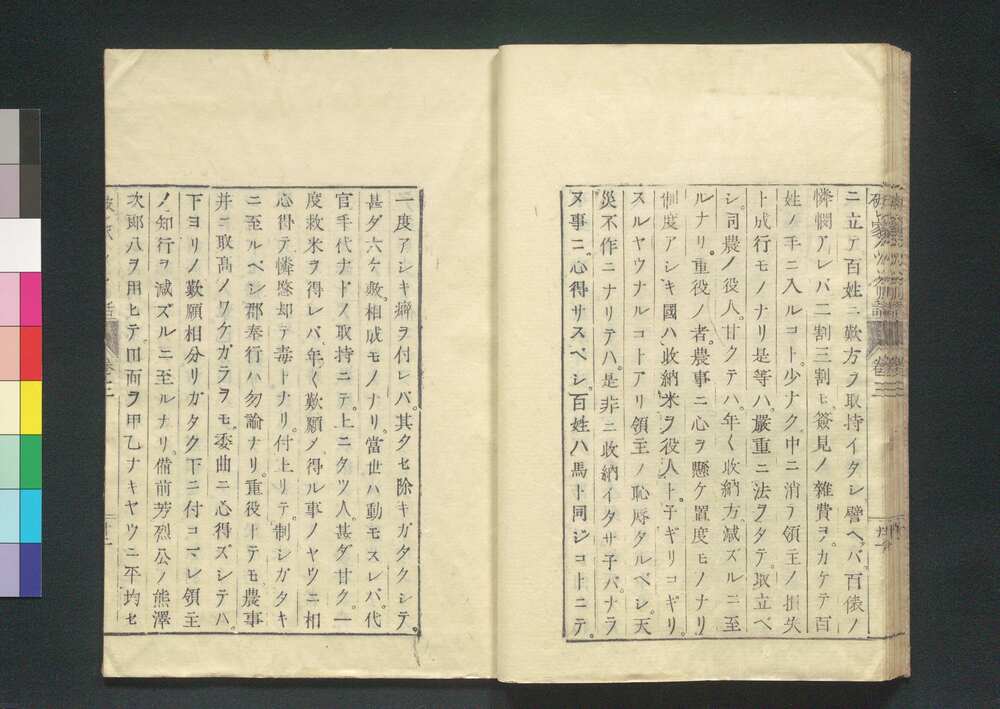 ニ立テ百姓ニ歎方ヲ取持イタシ譬ヘバ百俵ノ
憐憫アレバ二割三割モ發見ノ雜費ヲカケテ百
姓ノ手ニ入ルコト少ナク中ニ消テ領主ノ損失
ト成行モノナリ是等ハ嚴重ニ法ヲタテ取立ベ
シ司農ノ役人甘クテハ年々收納方減ズルニ至
ルナリ重役ノ者農事ニ心ヲ懸ケ置度モノナリ
制度アシキ國ハ收納米ヲ役人トチギリコギリ
スルヤウナルコトアリ領主ノ恥辱タルベシ天
災不作ニナリテハ是非ニ收納イタサ子バナラ
ヌ事ニ心得サスベシ百姓ハ馬ト同ジコトニテ
一度アシキ癖ヲ付レバ其クセ除キガタクシテ
甚ダ六ケ敷相成モノナリ當世ハ動モスレバ代
官手代ナドノ取持ニテ上ニタツ人甚ダ甘ク一
度救米ヲ得レバ年々歎願メ得ル事ノヤウニ相
心得テ憐愍却テ毒トナリ付上リテ制シガタキ
ニ至ルベシ郡奉行ハ勿論ナリ重役トテモ農事
井ニ取髙ノワケガラヲモ委曲ニ心得ズシテハ
下ヨリノ歎願相分リガタク下ニ付コマレ領主
ノ知行ヲ減ズルニ至ルナリ備前芳烈公ノ熊澤
次郎八ヲ用ヒテ田面ヲ甲乙ナキヤウニ平均セ